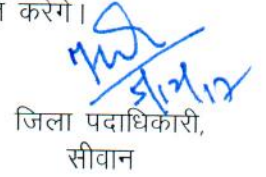 करेगें।
जिला पदाधिकारी,
सीवान